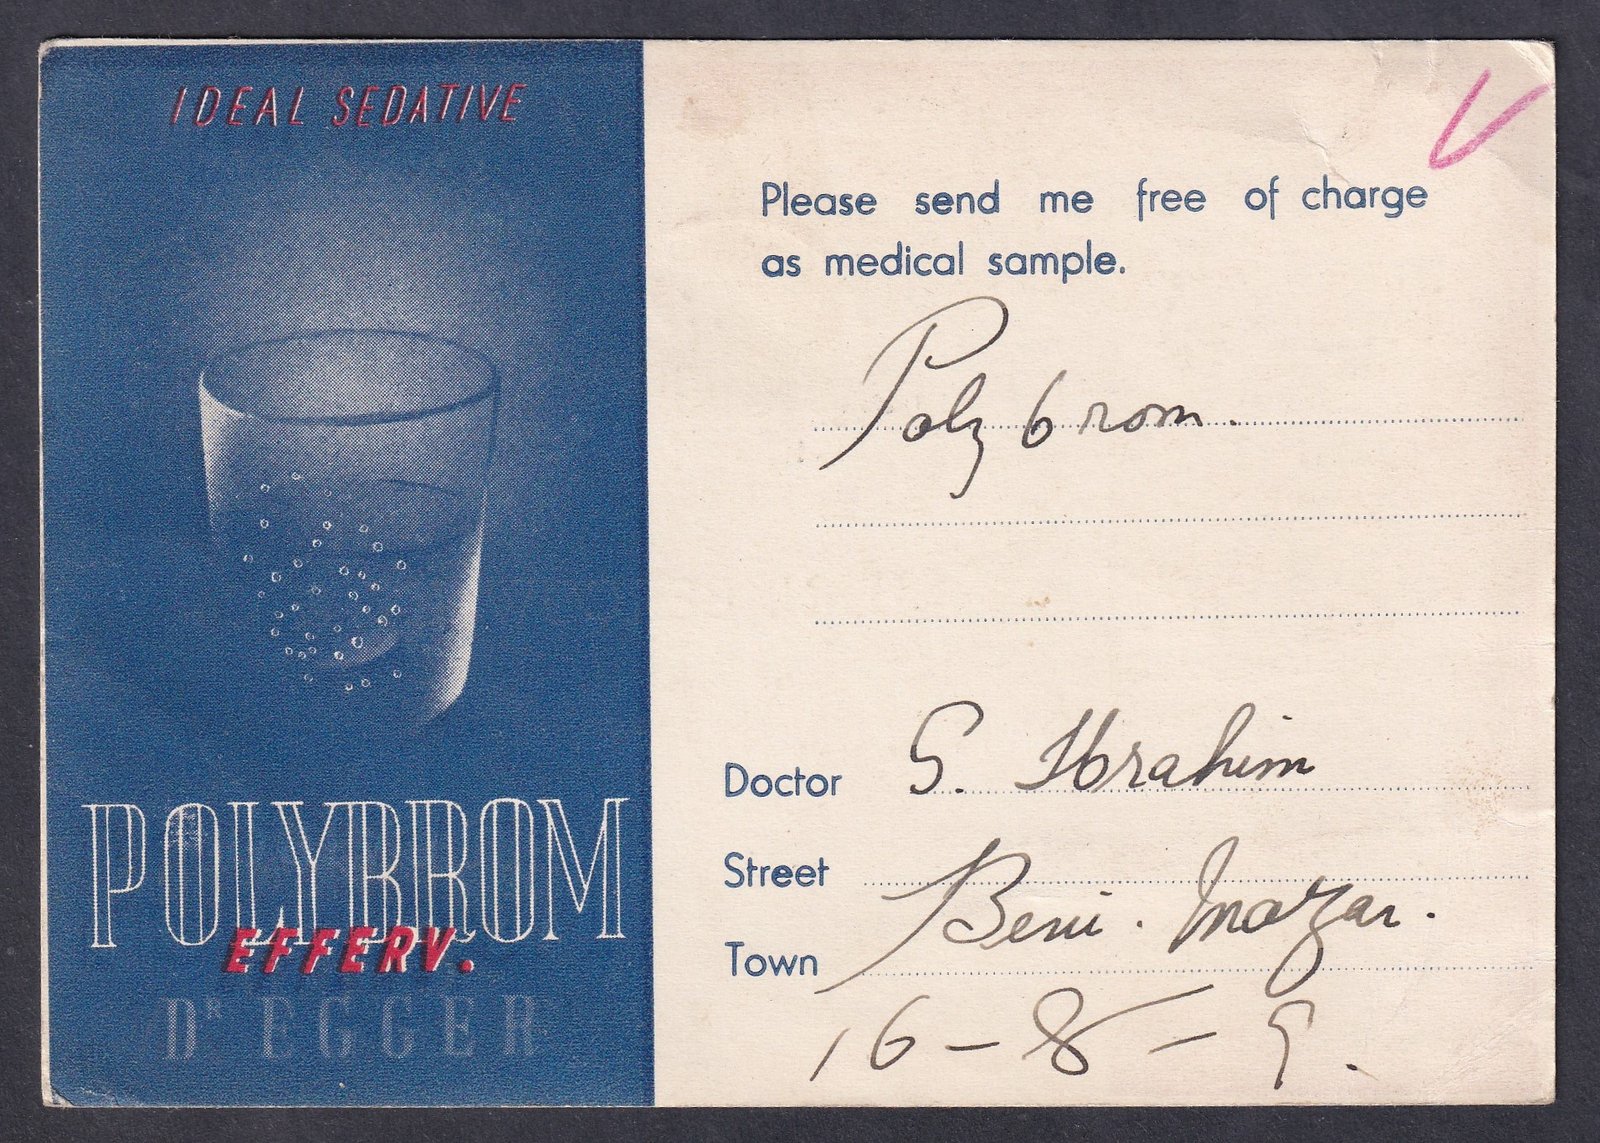 IDEAL SEDATIVE
POLYBROM
EFFERV.
DR EGGER
Please send me free of charge
as medical sample.
Polybrom.
Doctor S. Ibrahim
Street
Beni. Mazar.
Town
16-8-9.